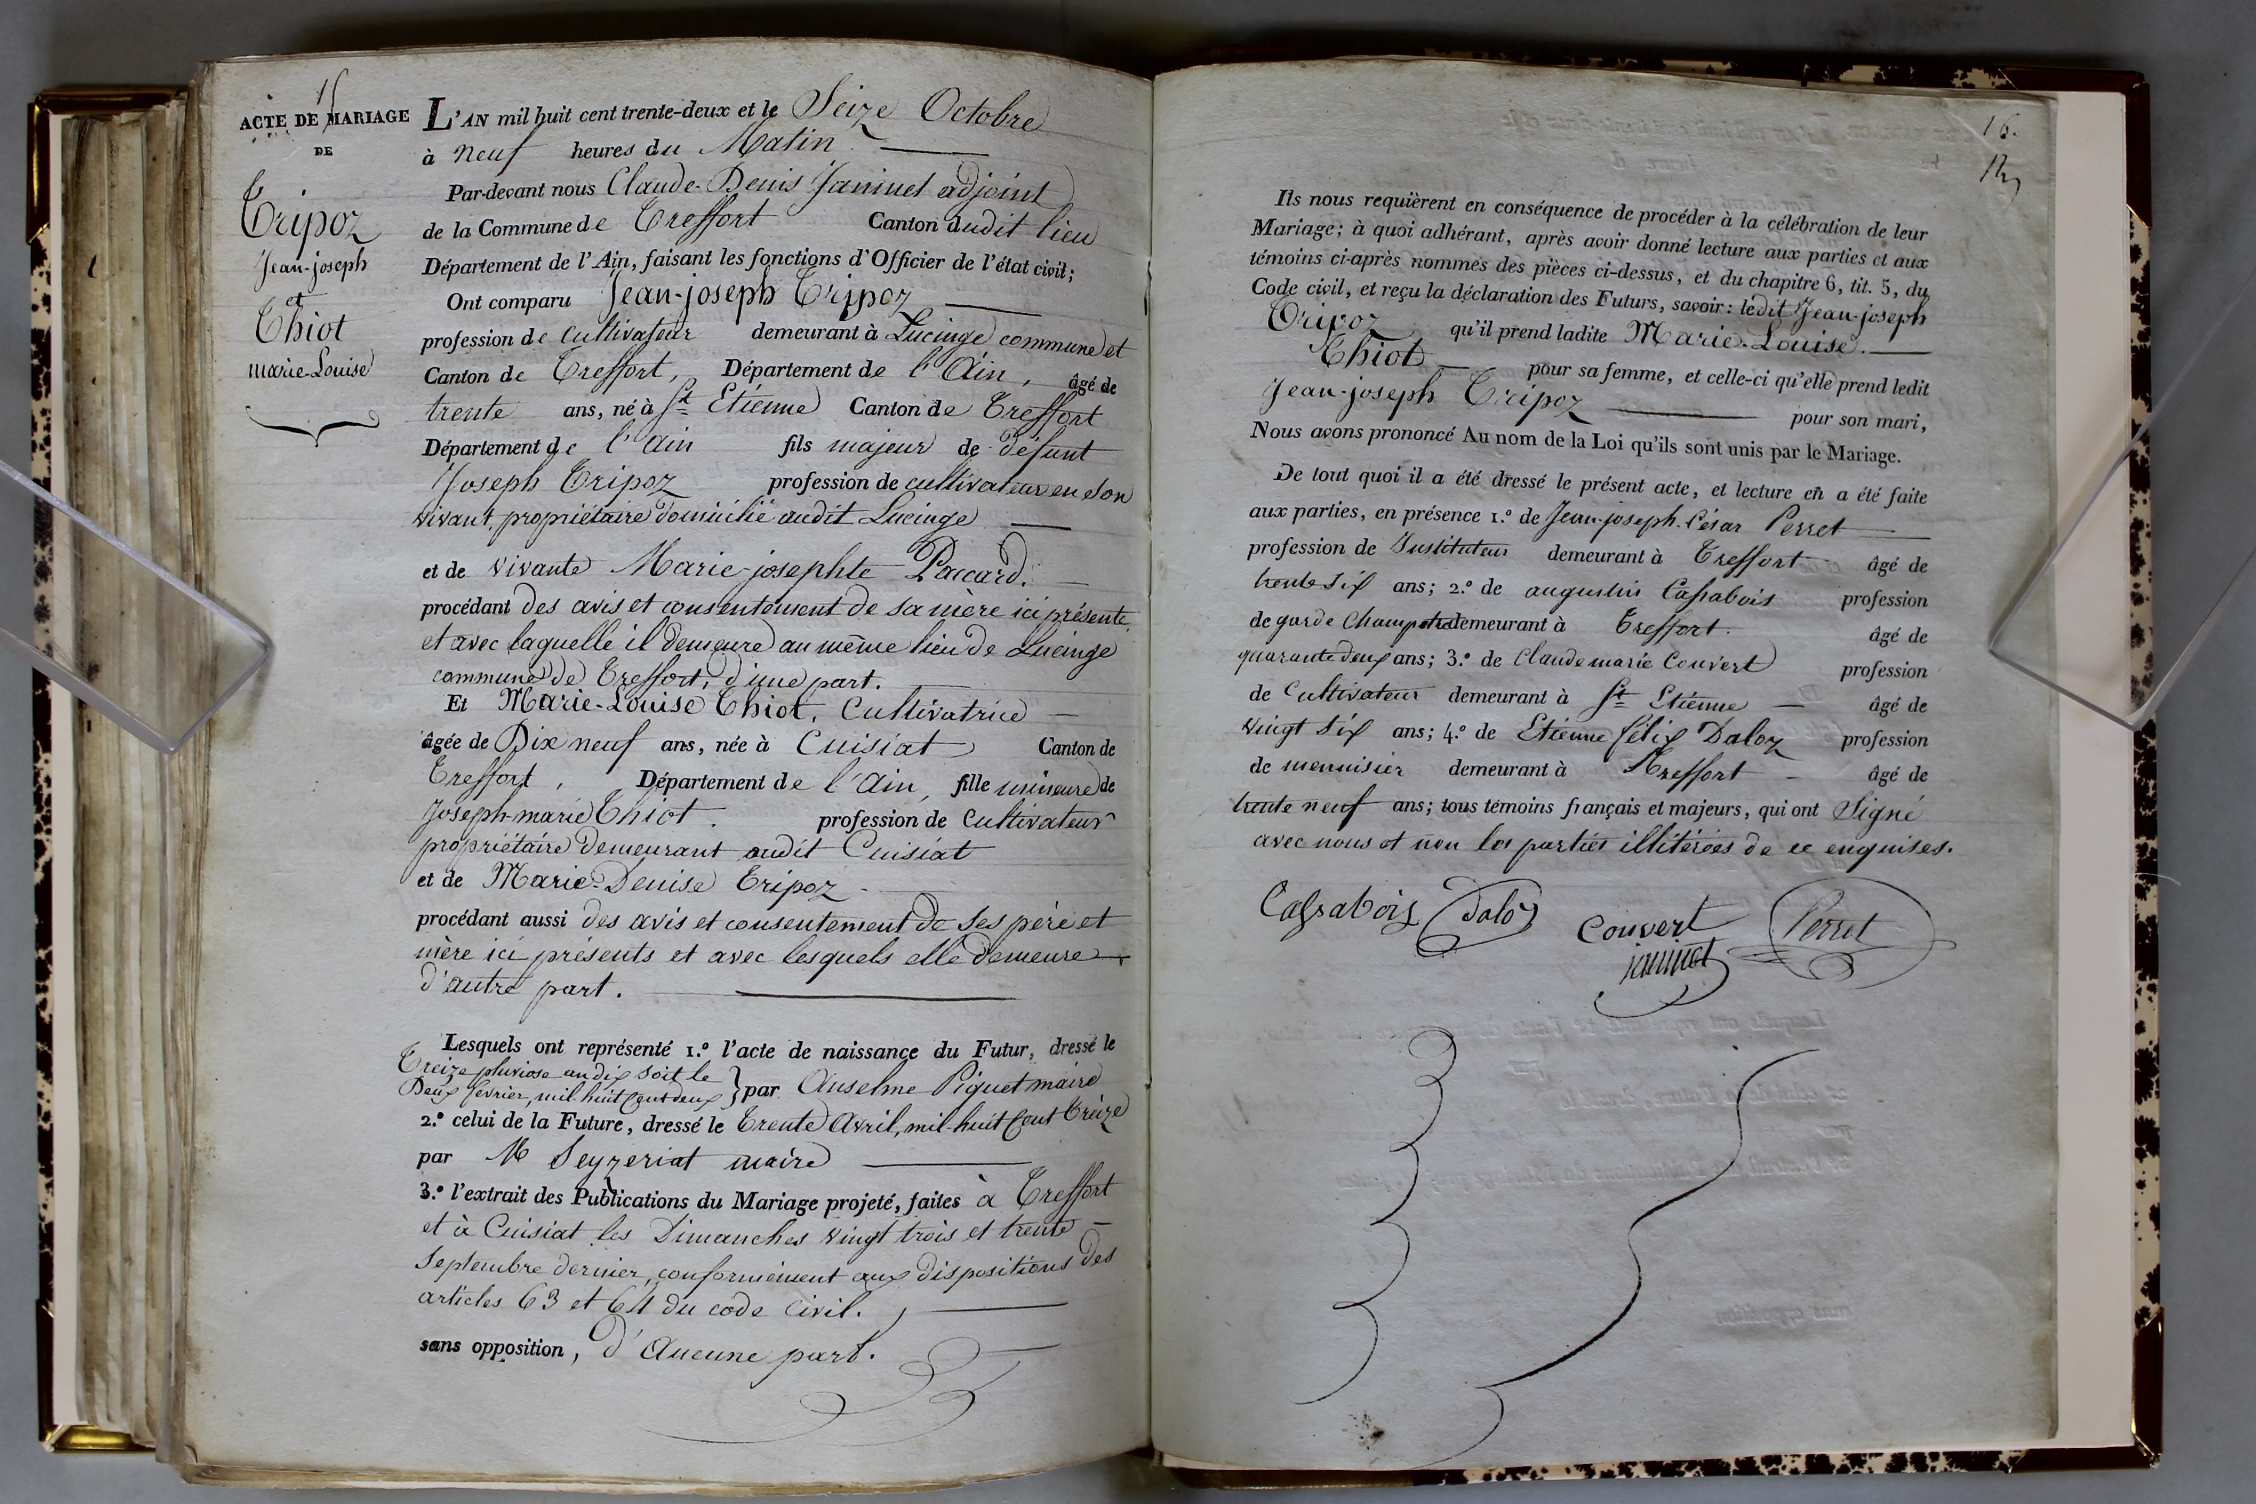 15
ACTE DE MARIAGE
DE
Tripoz
Jean-joseph
et
Thiot
marie-Louise
L'AN mil huit cent trente-deux et le Seize Octobre
à neuf heures du Matin
Par-devant nous Claude-Denis Janinet adjoint
de la Commune de Treffort Canton dudit lieu
Département de l'Ain, faisant les fonctions d'Officier de l'état civil;
Ont comparu Jean-joseph Tripoz
profession de cultivateur demeurant à Lucinge commune et
Canton de Treffort, Département de l'Ain, âgé de
trente ans, né à St Etienne Canton de Treffort
Département de l'ain fils majeur de défunt
Joseph Tripoz profession de cultivateur en son
vivant, propriétaire domicilié audit Lucinge
et de vivante Marie-josephte Paccard.
procédant des avis et consentement de sa mère ici présente
et avec laquelle il demeure au même lieu de Lucinge
commune de Treffort, d'une part.
Et Marie-Louise Thiot, Cultivatrice
âgée de Dix neuf ans, née à Cuisiat Canton de
Treffort, Département de l'ain, fille mineure de
Joseph-marie Thiot. profession de cultivateur
propriétaire demeurant audit Cuisiat
et de Marie-Denise Tripoz
procédant aussi des avis et consentement de ses père et
mère ici présents et avec lesquels elle demeure
d'autre part.
Lesquels ont représenté 1.º l'acte de naissance du Futur, dressé le
Treize pluviose an dix soit le
Deux fevrier, mil-huit Cent deux } par Anselme Piquet maire
2.º celui de la Future, dressé le Trente Avril, mil-huit Cent treize
par Mr Seyzeriat maire
3.º l'extrait des Publications du Mariage projeté, faites à Treffort
et à Cuisiat les Dimanches vingt trois et trente
Septembre dernier, conformément aux dispositions des
articles 63 et 64 du code civil.
sans opposition, d'Aucune part.
16.
Ils nous requièrent en conséquence de procéder à la célébration de leur
Mariage; à quoi adhérant, après avoir donné lecture aux parties et aux
témoins ci-après nommés des pièces ci-dessus, et du chapitre 6, tit. 5, du
Code civil, et reçu la déclaration des Futurs, savoir: ledit Jean-joseph
Tripoz qu'il prend ladite Marie-Louise.
Thiot pour sa femme, et celle-ci qu'elle prend ledit
Jean-joseph Tripoz pour son mari,
Nous avons prononcé Au nom de la Loi qu'ils sont unis par le Mariage.
De tout quoi il a été dressé le présent acte, et lecture en a été faite
aux parties, en présence 1.º de Jean-joseph-César Perret
profession de Instituteur demeurant à Treffort âgé de
trente six ans; 2.º de augustin Cassabois profession
de garde Champetre demeurant à Treffort. âgé de
quarante deux ans; 3.º de Claude marie Couvert profession
de Cultivateur demeurant à St Etienne âgé de
vingt six ans; 4.º de Etienne félix Daloz profession
de menuisier demeurant à Treffort âgé de
trente neuf ans; tous témoins français et majeurs, qui ont Signé
avec nous et non les parties illitérées de ce enquises.
Cassabois Daloz Couvert Perret
janinet